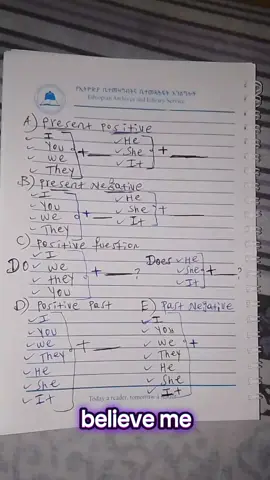 የኢትዮጵያ ቤተመዛግብትና ቤተመጻሕፍት አገልግሎት
Ethiopian Archives and Library Service
A) Present positive
✓ I ✓ He
✓ You ✓ She
✓ We + ___ ✓ It + ___
✓ They
B) Present Negative
✓ I ✓ He
✓ You ✓ She
✓ We + ___ ✓ It + ___
✓ They
C) Positive fuestion
✓ I Does ✓ He
DO ✓ We + ___? ✓ She + ___?
✓ they ✓ It
✓ You
D) Positive Past E) Past Negative
✓ I ✓ I
✓ You ✓ You
✓ We + ___ ✓ We +
✓ They ✓ They
✓ He ✓ He
✓ She ✓ She
✓ It ✓ It
Today a reader, tomorrow a
believe me